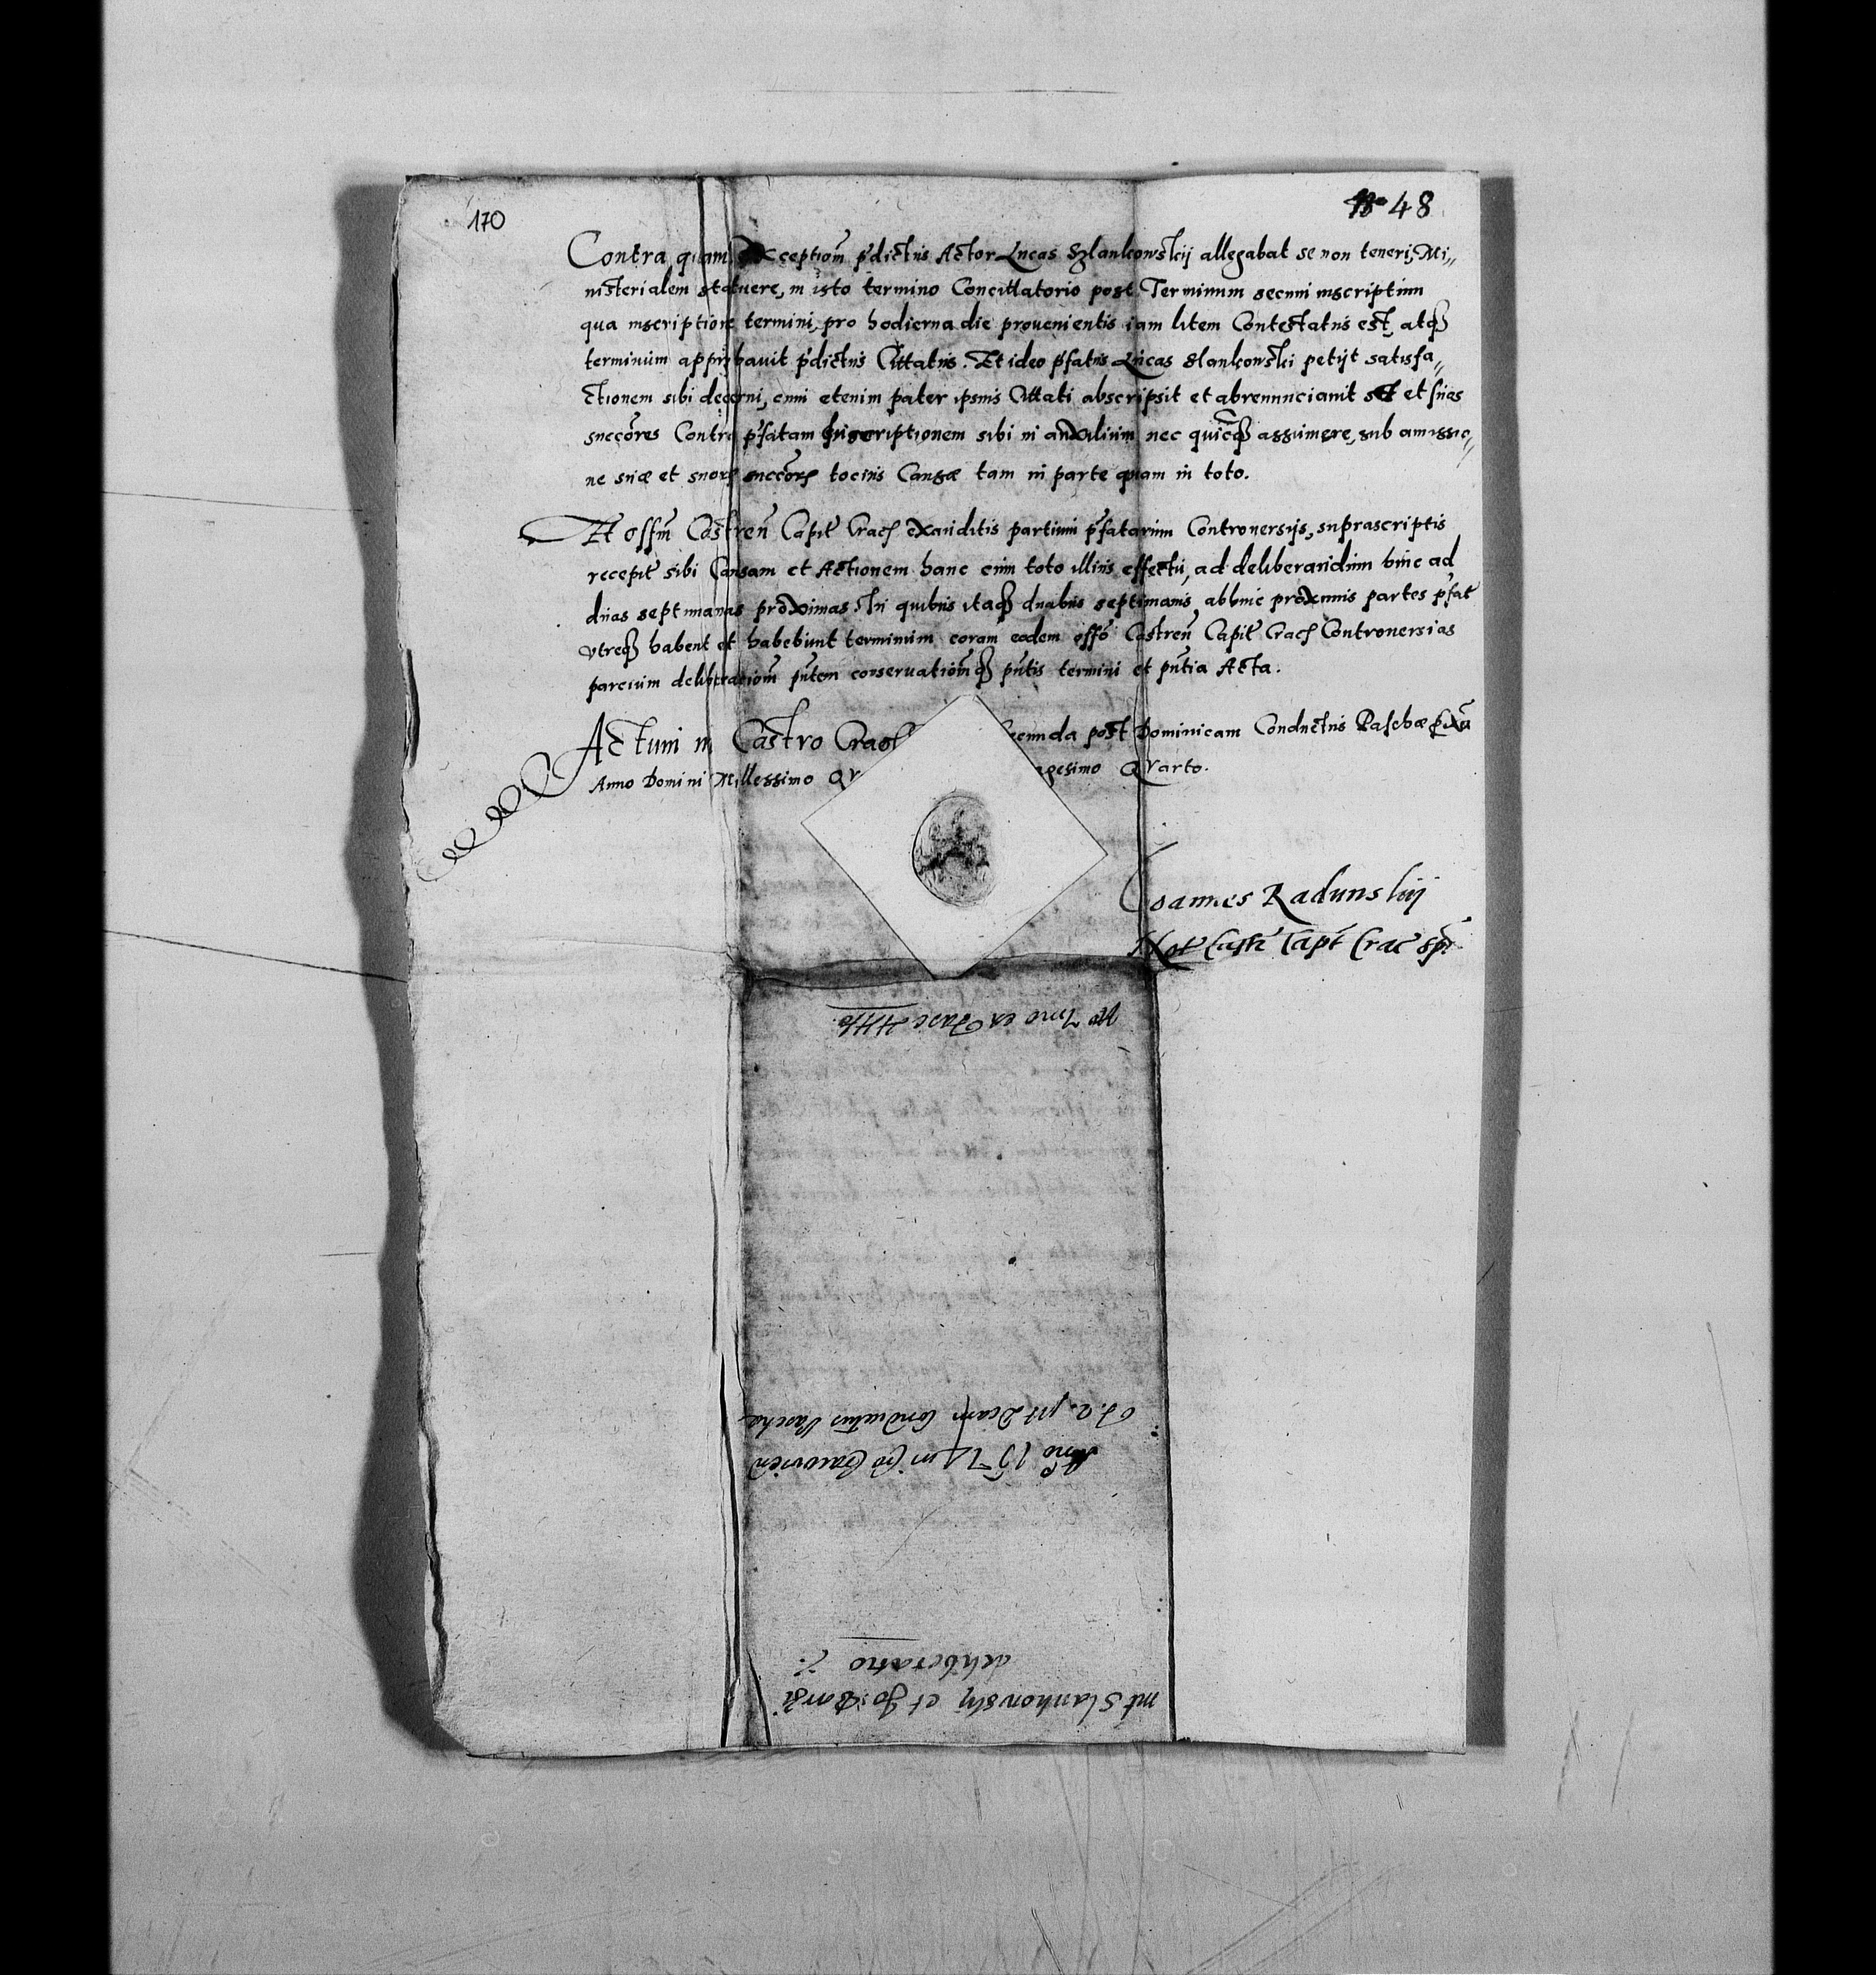 170
No 48
Contra quam exceptiom̃ p̃dictus Actor Lucas Slankowskij allegabat se non teneri, Mi„
nisterialem statuere, in isto termino Concitatorio post Terminum secum inscriptum
qua inscriptione termini, pro hodierna die prouenientis iam litem Contestatus est, atq̃
terminum approbauit p̃dictus Cittatus. Et ideo p̃fatus Lucas Slankowski petijt satisfa„
ctionem sibi decerni, cum etenim pater ipsius Cittati abscripsit et abrenunciauit se et suos
succõres Contra p̃fatam Inscriptionem sibi in auxilium nec quicq̃ assumere, sub amissio„
ne suæ et suorꝝ succõrꝝ tocius Causæ tam in parte quam in toto.
Et offm̃ Castreñ Capit̃ Crac̃ exauditis partium p̃fatarum Controuersijs, suprascriptis
recepit sibi Causam et Actionem hanc cum toto illius effectu, ad deliberandum hinc ad
duas septimanas proximas. In quibus itaq̃ duabus septimanis, abhinc proximis partes p̃fat̃
vtreq̃ habent et habebunt terminum coram eodem offõ Castreñ Capit̃ Crac̃ Controuersias
parcium deliberatiom̃ p̃ntem conseruatiom̃q̃ p̃ntis termini et p̃ntia Acta.
Actum in Castro Crac̃ cunda post Dominicam Conductus Paschæ p̃xã
Anno Domini Millessimo Qv gesimo Qvarto.
Joannes Radunskij
Not Castr̃ Capt̃ Crac̃ sp̃t
No Imo ex Fasc
f. 2. pst Dcam Conductus Paschæ
Ano 1574 in C̃o Cracovien
int Slankowskij et Jo: Borzi
deliberatio